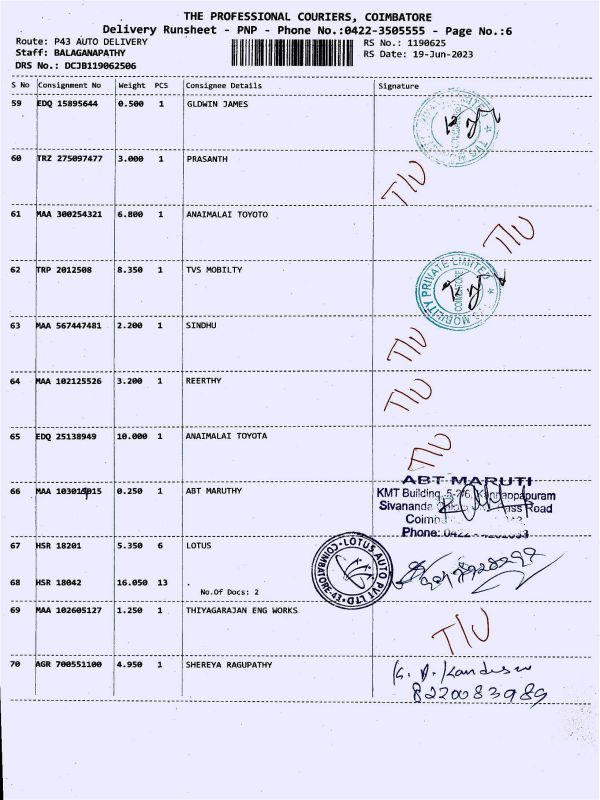 THE PROFESSIONAL COURIERS, COIMBATORE
Delivery Runsheet - PNP - Phone No.:0422-3505555 - Page No.:6
Route: P43 AUTO DELIVERY
RS No.: 1190625
Staff: BALAGANAPATHY
RS Date: 19-Jun-2023
DRS No.: DCJB119062506
S No Consignment No Weight PCS Consignee Details Signature
59 EDQ 15895644 0.500 1 GLDWIN JAMES
60 TRZ 275097477 3.000 1 PRASANTH T/U
61 MAA 300254321 6.800 1 ANAIMALAI TOYOTO T/U
62 TRP 2012508 8.350 1 TVS MOBILTY
TVS MOBILITY PRIVATE LIMITED
COIMBATORE
63 MAA 567447481 2.200 1 SINDHU T/U
64 MAA 102125526 3.200 1 REERTHY T/U
65 EDQ 25138949 10.000 1 ANAIMALAI TOYOTA T/U
66 0.250 1 ABT MARUTHY
MAA
ABT MARUTI
KMT Building,
Sivananda Road
Phone:
67 HSR 18201 5.350 6 LOTUS
LOTUS AUTO PVT LTD
COIMBATORE-43
68 HSR 18042 16.050 13
No.Of Docs: 2
69 MAA 102605127 1.250 1 THIYAGARAJAN ENG WORKS T/U
70 AGR 700551100 4.950 1 SHEREYA RAGUPATHY
8220083989